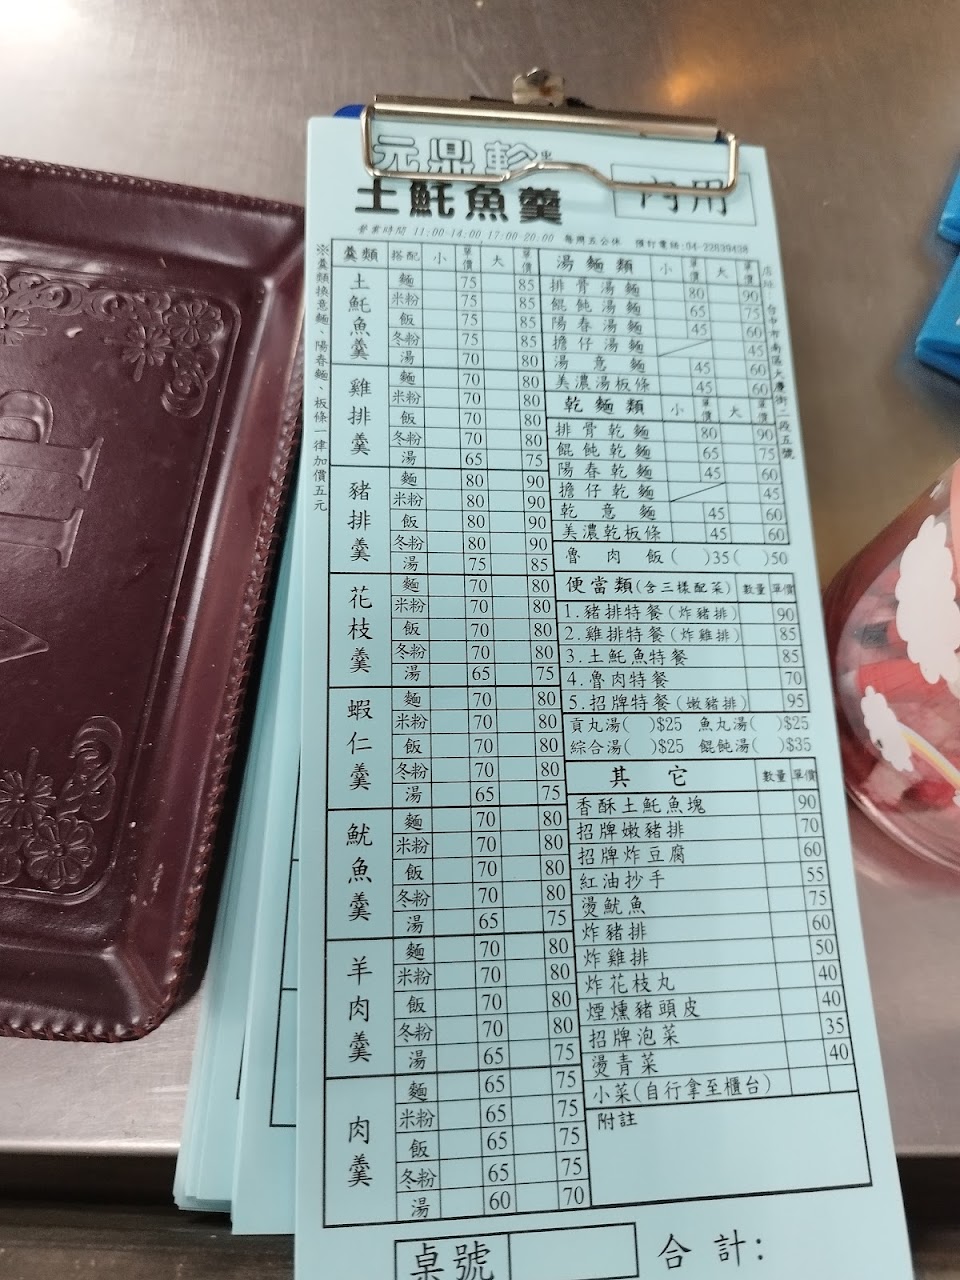 元鼎軫
土魠魚羹
內用
營業時間 11:00-14:00 17:00-20:00 每周五公休 預訂電話:04-22639438
※羹類換意麵、陽春麵、板條一律加價五元
羹類 搭配 小 單價 大 單價
土魠魚羹
麵 75 85
米粉 75 85
飯 75 85
冬粉 75 85
湯 70 80
雞排羹
麵 70 80
米粉 70 80
飯 70 80
冬粉 70 80
湯 65 75
豬排羹
麵 80 90
米粉 80 90
飯 80 90
冬粉 80 90
湯 75 85
花枝羹
麵 70 80
米粉 70 80
飯 70 80
冬粉 70 80
湯 65 75
蝦仁羹
麵 70 80
米粉 70 80
飯 70 80
冬粉 70 80
湯 65 75
魷魚羹
麵 70 80
米粉 70 80
飯 70 80
冬粉 70 80
湯 65 75
羊肉羹
麵 70 80
米粉 70 80
飯 70 80
冬粉 70 80
湯 65 75
肉羹
麵 65 75
米粉 65 75
飯 65 75
冬粉 65 75
湯 60 70
湯麵類 小 單價 大 單價
排骨湯麵 80 90
餛飩湯麵 65 75
陽春湯麵 45 60
擔仔湯麵 45
湯意麵 45 60
美濃湯板條 45 60
乾麵類 小 單價 大 單價
排骨乾麵 80 90
餛飩乾麵 65 75
陽春乾麵 45 60
擔仔乾麵 45
乾意麵 45 60
美濃乾板條 45 60
魯肉飯( )35( )50
便當類(含三樣配菜) 數量 單價
1.豬排特餐(炸豬排) 90
2.雞排特餐(炸雞排) 85
3.土魠魚特餐 85
4.魯肉特餐 70
5.招牌特餐(嫩豬排) 95
貢丸湯( )$25 魚丸湯( )$25
綜合湯( )$25 餛飩湯( )$35
其它 數量 單價
香酥土魠魚塊 90
招牌嫩豬排 70
招牌炸豆腐 60
紅油抄手 55
燙魷魚 75
炸豬排 60
炸雞排 50
炸花枝丸 40
煙燻豬頭皮 40
招牌泡菜 35
燙青菜 40
小菜(自行拿至櫃台)
附註
店址:台中市南區大慶街二段五號
桌號
合計:
VIP